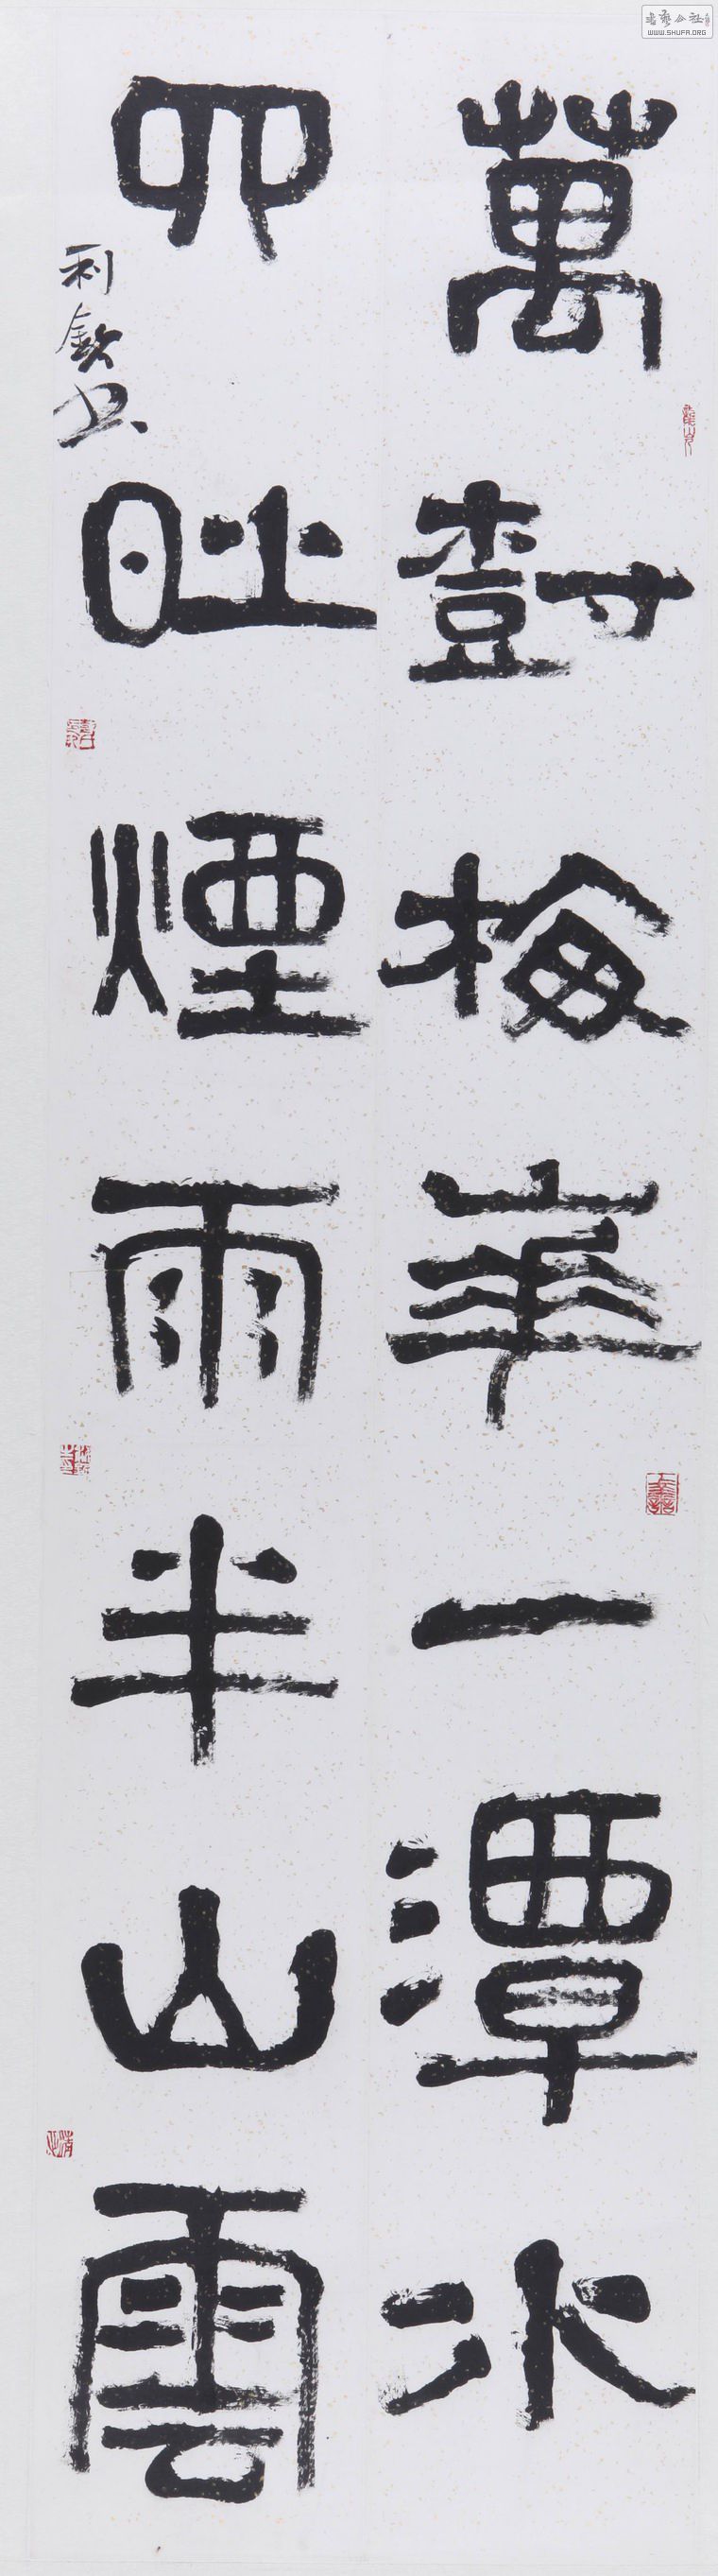 萬樹梅華一潭水
四時煙雨半山雲
利欽書
書藝公社
WWW.SHUFA.ORG